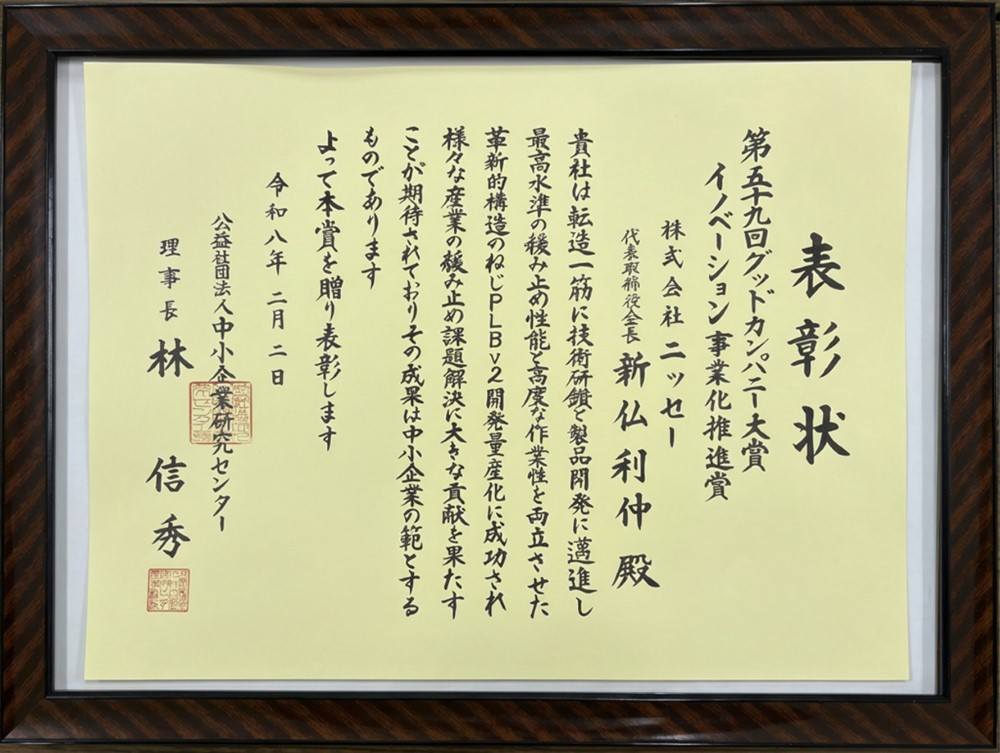 表彰状
第五十九回グッドカンパニー大賞
イノベーション事業化推進賞
株式会社ニッセー
代表取締役会長 新仏利仲 殿
貴社は転造一筋に技術研鑚と製品開発に邁進し
最高水準の緩み止め性能と高度な作業性を両立させた
革新的構造のねじPLBv2開発量産化に成功され
様々な産業の緩み止め課題解決に大きな貢献を果たす
ことが期待されておりその成果は中小企業の範とする
ものであります
よって本賞を贈り表彰します
令和八年 二月 二日
公益社団法人中小企業研究センター
理事長 林 信秀